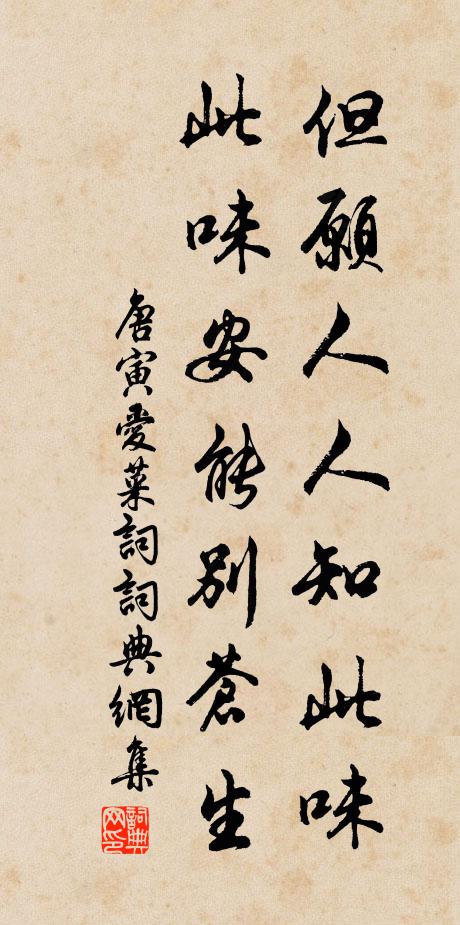 但願人人知此味
此味安能别蒼生
唐寅愛菜詞詞典網集
詞典網印